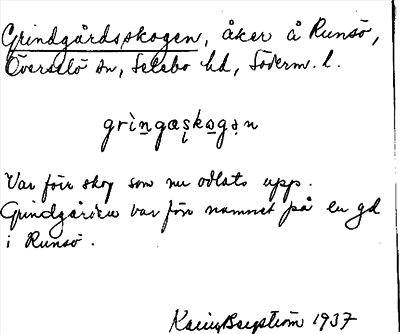 Grindgårdsskogen, åker å Runsö,
Överselö sn, Selebo hd, Söderm. l.
grìn̲gɷʂkɷ̲gə̣n
Var förr skog som nu odlats upp.
Grindgården var förr namnet på en gd
i Runsö.
Karin Bergström 1937